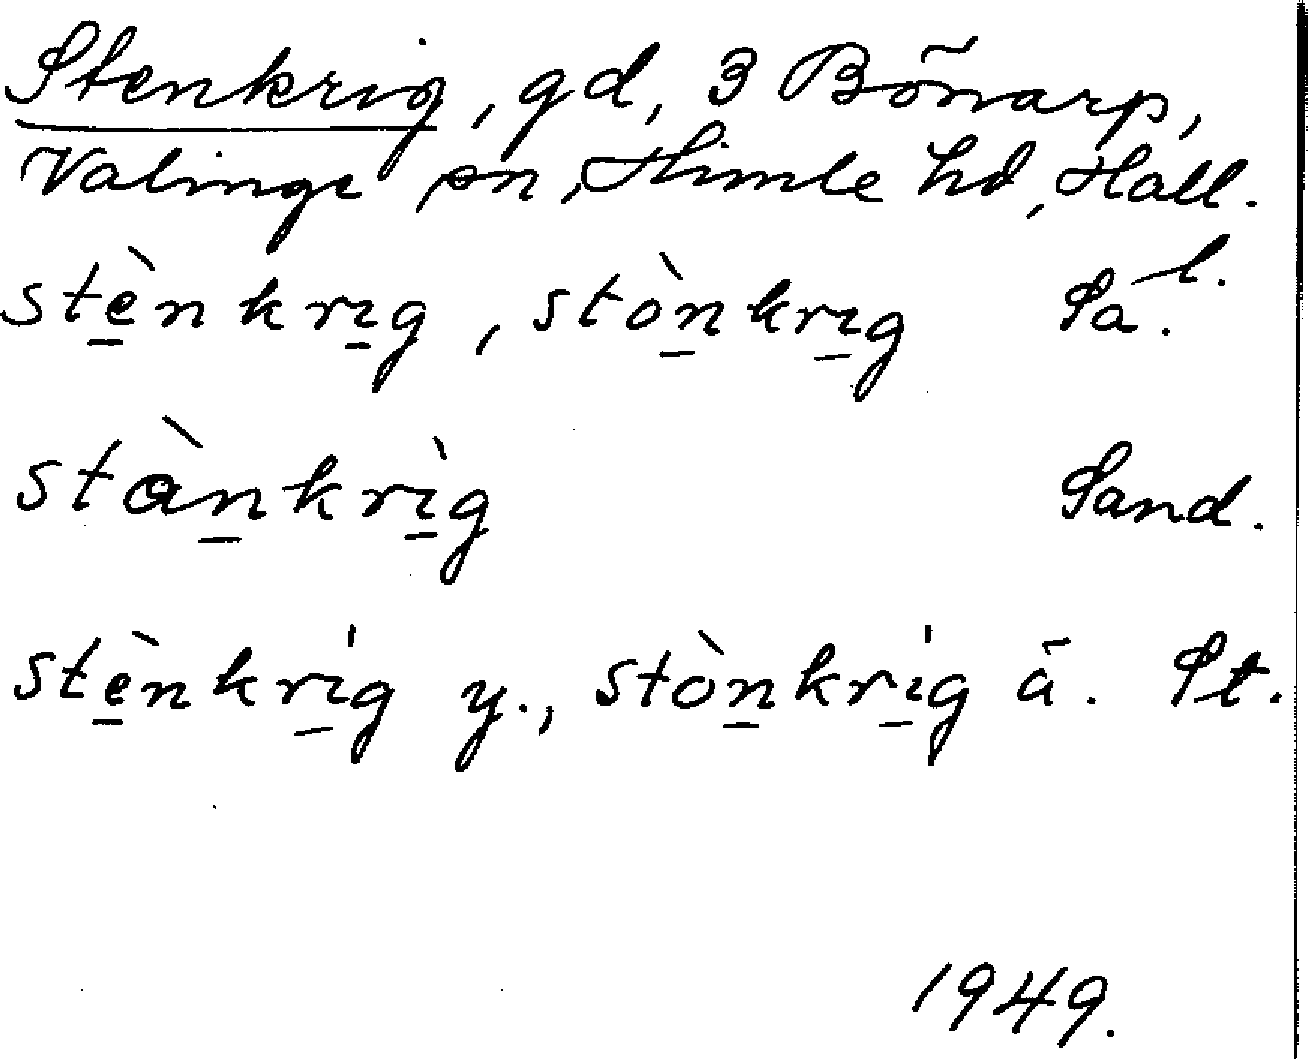 Stenkrig, gd, 3 Bönarp,
Valinge sn, Himle hd, Hall.
stè̱nkrı̱g, stòṉkrı̱g Sä l.
stàṉkrı̱̀g Sand.
stè̱nkrı̱́g y., stòṉkrı̱́g ä. St.
1949.